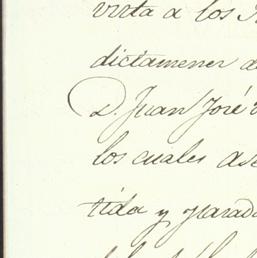 virta a los
dictamener a
D. Juan José
los cuales ase
tida y parada